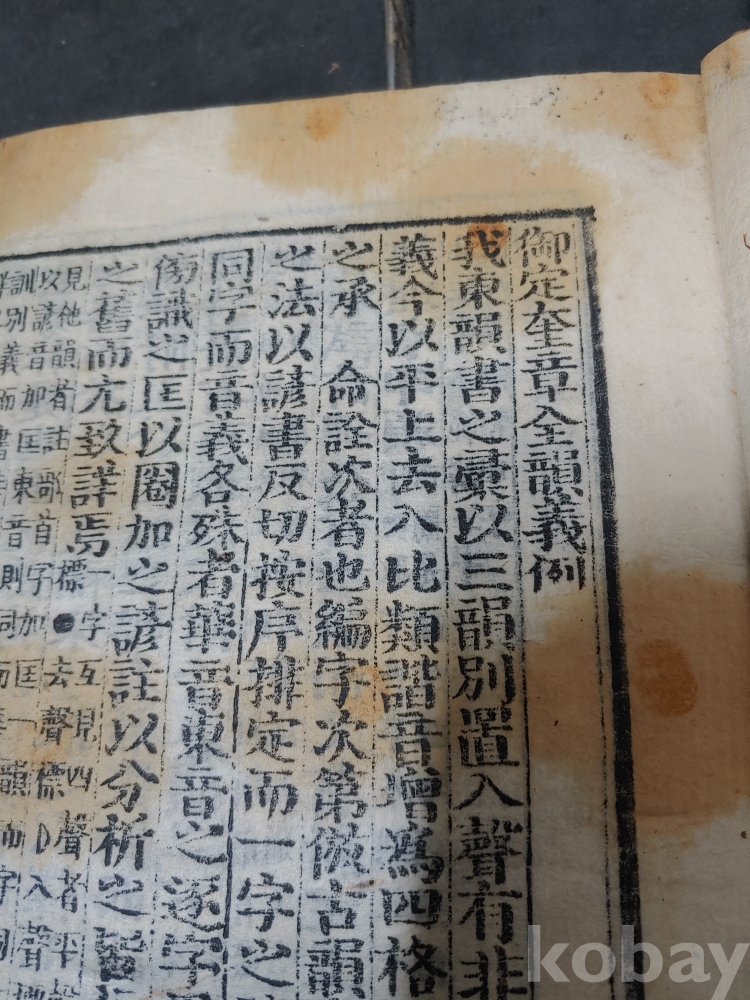 御定奎章全韻義例
我東韻書之彙以三韻別置入聲有非
義今以平上去入比類諧音增爲四格
之承 命詮次者也編字次第倣古韻
之法以諺書反切按序排定而一字之
同字而音義各殊者華音東音之逐字
傍識之匡以圈加之諺註以分析之
之舊而亢致詳焉一字互見四聲者平聲
見他韻者註部首字標●去聲標D入聲標
以諺音加匡東音則加匡一
訓別義而
kobay